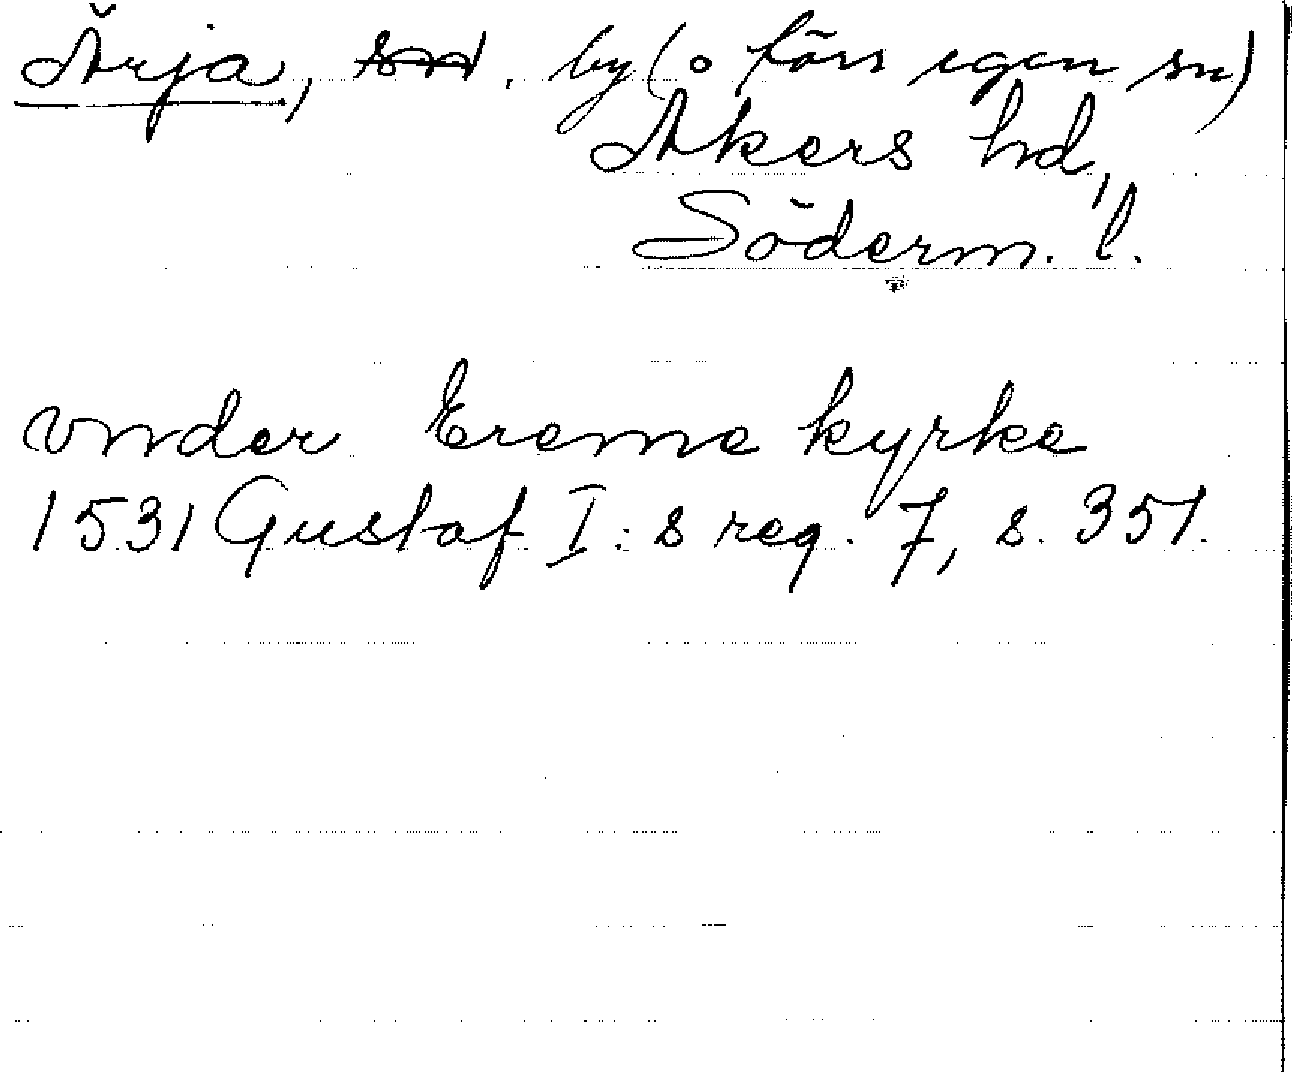 Ärja, . by (o förr egen sn)
Åkers hd,
Söderm. l.
vnder Ereme kyrke
1531 Gustaf I:s reg. 7, s. 351.